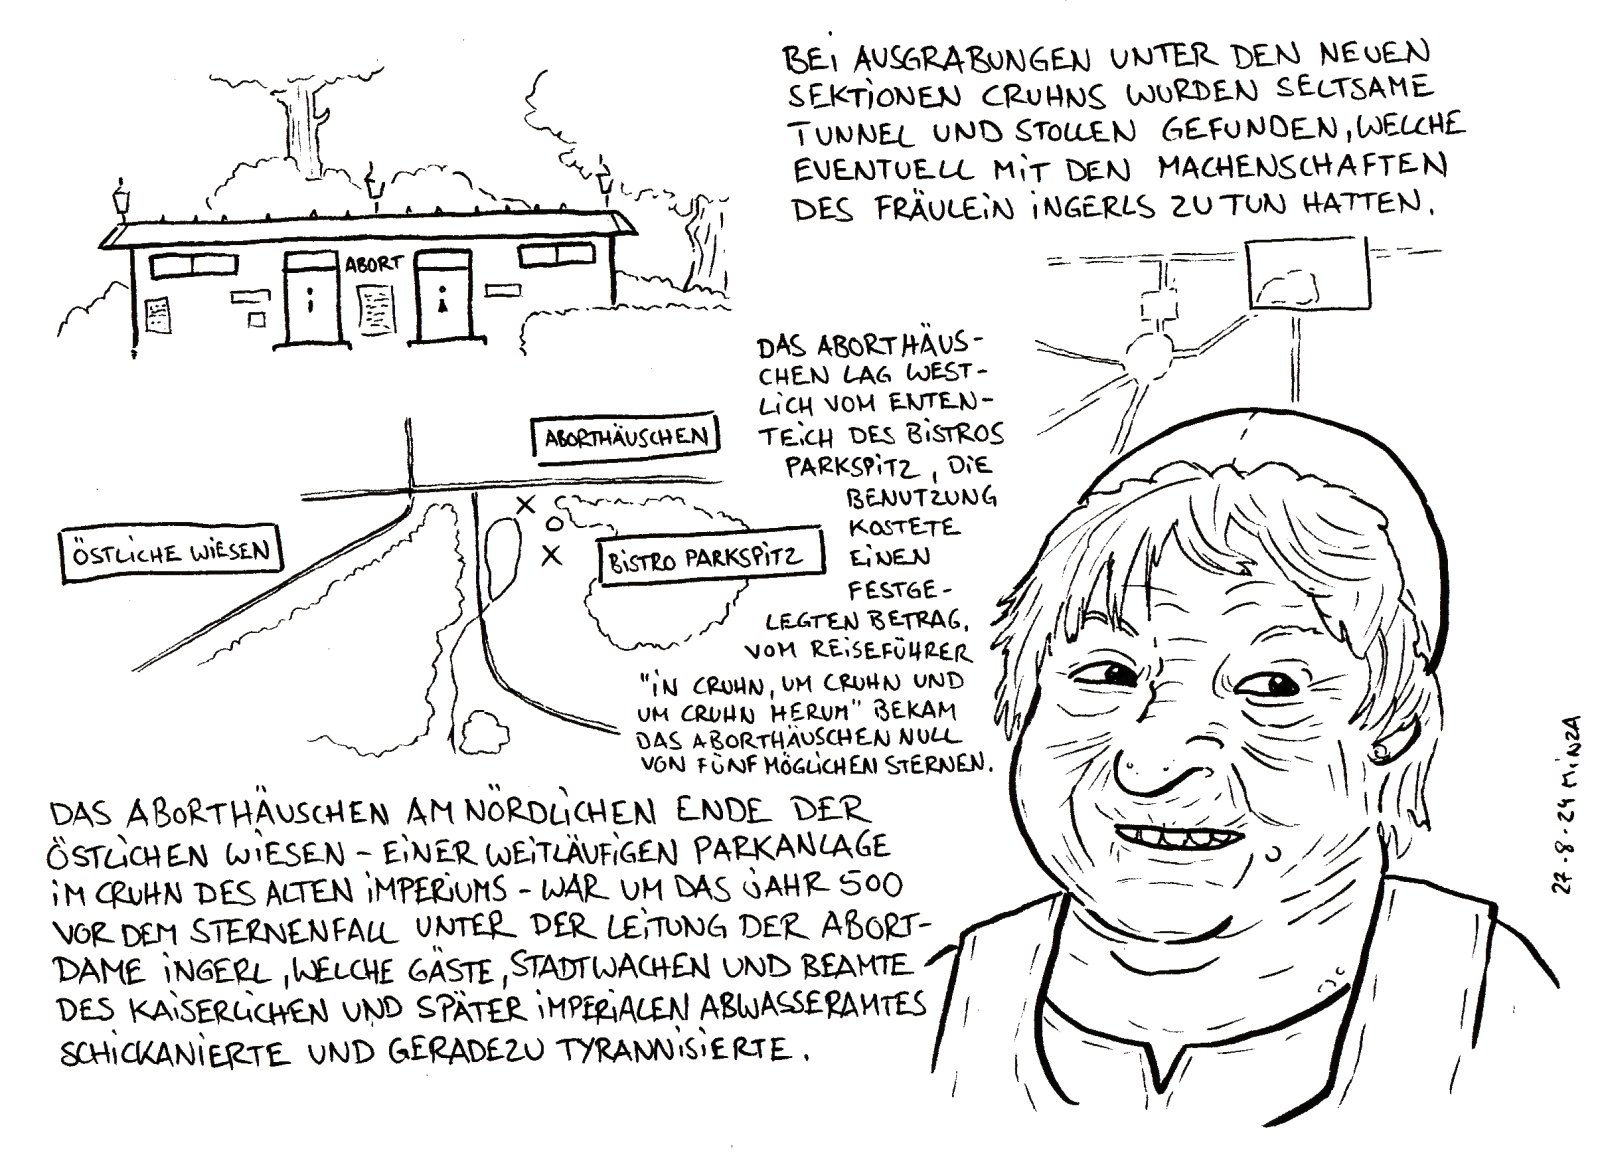 BEI AUSGRABUNGEN UNTER DEN NEUEN
SEKTIONEN CRUHNS WURDEN SELTSAME
TUNNEL UND STOLLEN GEFUNDEN, WELCHE
EVENTUELL MIT DEN MACHENSCHAFTEN
DES FRÄULEIN INGERLS ZU TUN HATTEN.
ABORT
DAS ABORTHÄUS-
CHEN LAG WEST-
LICH VOM ENTEN-
TEICH DES BISTROS
PARKSPITZ, DIE
BENUTZUNG
KOSTETE
EINEN
FESTGE-
LEGTEN BETRAG.
VOM REISEFÜHRER
"IN CRUHN, UM CRUHN UND
UM CRUHN HERUM" BEKAM
DAS ABORTHÄUSCHEN NULL
VON FÜNF MÖGLICHEN STERNEN.
ABORTHÄUSCHEN
ÖSTLICHE WIESEN
BISTRO PARKSPITZ
DAS ABORTHÄUSCHEN AM NÖRDLICHEN ENDE DER
ÖSTLICHEN WIESEN - EINER WEITLÄUFIGEN PARKANLAGE
IM CRUHN DES ALTEN IMPERIUMS - WAR UM DAS JAHR 500
VOR DEM STERNENFALL UNTER DER LEITUNG DER ABORT-
DAME INGERL, WELCHE GÄSTE, STADTWACHEN UND BEAMTE
DES KAISERLICHEN UND SPÄTER IMPERIALEN ABWASSERAMTES
SCHICKANIERTE UND GERADEZU TYRANNISIERTE.
27-8-24 MINZA